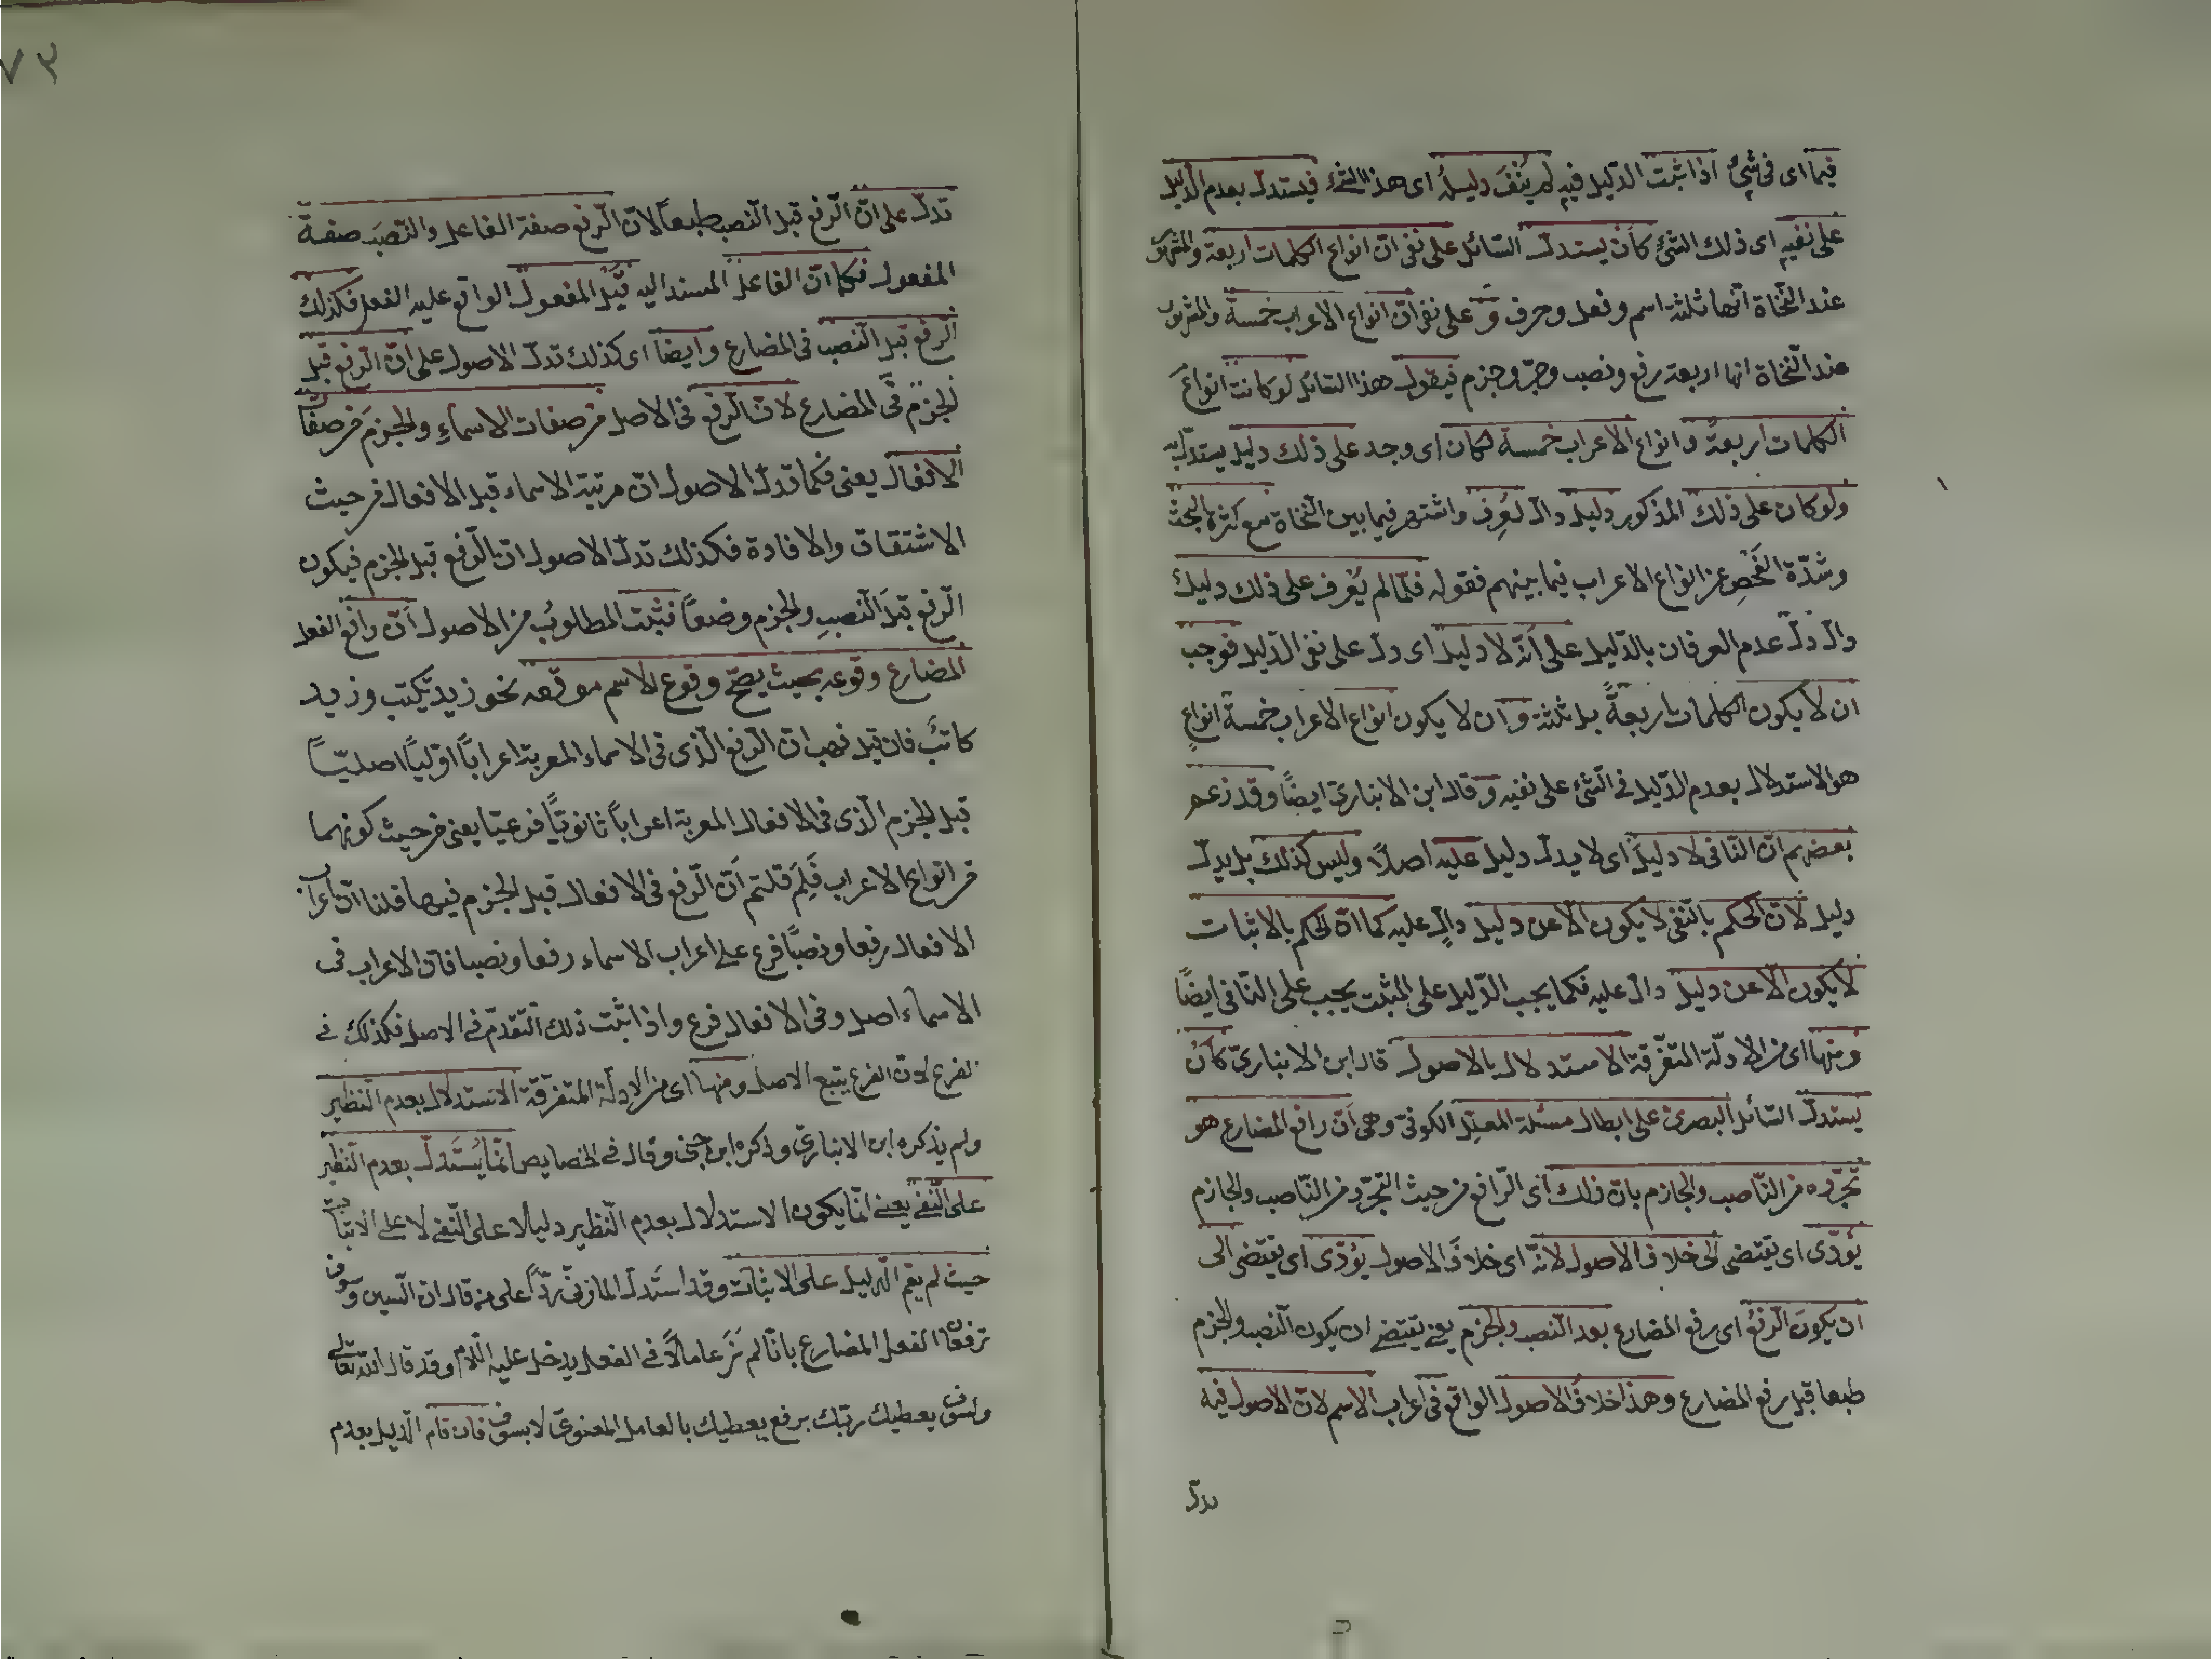 فيما اى فى شئ اذا ثبت الدّليل فيه لم يُنْفَ دليله اى هذا الشئ فيستدلّ بعدم الدّليل
على نفيه اى ذلك الشئ كأن يستدلّ السّائل على نفى انّ انواع الكلمات اربعة والمشهور
عند النّحاة انّها ثلثة اسم وفعل وحرف وَ على نفى انّ انواع الاعراب خمسة والمشهور
عند النّحاة انها اربعة رفع ونصب وجرّ وجزم فيقول هذا القائل لو كانت انواع
الكلمات اربعة وانواع الاعراب خمسة لكان اى وجد على ذلك دليل يستدلّ به
ولو كان على ذلك المذكور دليل دالّ لعُرِف واشتهر فيما بين النّحاة مع كثرة البحث
وشدّة الفَحْصِ عن انواع الاعراب فيما بينهم فقوله فلمّا لم يُعْرف على ذلك دليل
دالّ دلّ عدم العرفان بالدّليل على أنّه لا دليل اى دلّ على نفى الدّليل فوجب
ان لا يكون الكلمات اربعةً بل ثلثة وَ ان لا يكون انواع الاعراب خمسة انواعٍ
هو الاستدلال بعدم الدّليل فى الشّئ على نفيه وقال ابن الانبارىّ ايضًا وقد زعم
بعضهم انّ النّافى لا دليلَ اى لا يدلّ دليل عليه اصلًا وليس كذلك بل يدلّ
دليل لأنّ الحكم بالنّفى لا يكون الّا عن دليل دالٍّ عليه كما انّ الحكم بالاثبات
لا يكون الّا عن دليل دالّ عليه فكما يجب الدّليل على المثبت يجب على النّافى ايضًا
ومنها اى من الادلّة المتفّرقة الاستدلال بالاصول قال ابن الانبارىّ كأن
يستدلّ السّائل البصرىّ على ابطال مسئلة المعلّل الكوفىّ وهى أنّ رافع المضارع هو
تجرّده من النّاصب والجازم بانّ ذلك اى الرّافع من حيث التجرّد من النّاصب والجازم
يؤدّى اى يقتضى الى خلاف الاصول لانّه اى خلافَ الاصول يؤدّى اى يقتضى الى
ان يكونَ الرّفعُ اى رفع المضارع بعد النّصب والجزم يعنى يقتضى ان يكون النّصب والجزم
طبعا قبل رفع المضارع وهذا خلاف الاصول الواقع فى اعراب الاسم لانّ الاصول فيه
تدلّ
٧٣
تدلّ على انّ الرّفع قبل النّصب طبعاً لانّ الرّفع صفة الفاعل والنّصبَ صفةُ
المفعول فكما انّ الفاعل المسند اليه قبل المفعول الواقع عليه الفعل فكذلك
الرّفع قبل النّصب فى المضارع وايضًا اى كذلك تدلّ الاصول على انّ الرّفع قبل
الجزم فى المضارع لانّ الرّفع فى الاصل من صفات الاسماءِ والجزمَ من صفات
الافعال يعنى فكما تدلّ الاصول انّ مرتبة الاسماء قبل الافعال من حيث
الاشتقاق والافادة فكذلك تدلّ الاصول انّ الرّفع قبل الجزم فيكون
الرّفع قبلَ النّصبِ والجزم وضعاً فثبت المطلوبُ من الاصول أنّ رافع الفعل
المضارع وقوعه بحيث يصحّ وقوع الاسم موقعه نحو زيد يكتب وزيد
كاتبٌ فان قيل نهب انّ الرّفع الّذى فى الاسماء المعربة اعراباً اوّليًّا اصليّاً
قبل الجزم الّذى فى الافعال المعربة اعراباً ثانويًّا فرعيّا يعنى من حيث كونهما
من انواع الاعراب فَلِمَ قلتم أنّ الرّفع فى الافعال قبل الجزم فيها قلنا انّ اعراب
الافعال رفعا ونصبًا فرع على اعراب الاسماء رفعا ونصبا فانّ الاعراب فى
الاسماء اصل وفى الافعال فرع واذا ثبت ذلك التّقدّم فى الاصل فكذلك فى
الفرع لانّ الفرع يتبع الاصل ومنها اى من الادلّة المتفرّقة الاستدلال بعدم النّظير
ولم يذكره ابن الانبارىّ وذكره ابن جنى وقال فى الخصايص انّما يُسْتَدلّ بعدم النّظير
على النّفى يعنى انّما يكون الاستدلال بعدم النّظير دليلا على النّفى لا على الاثبات
حيث لم يقم الدّليل على الاثبات وقد استَدلّ المازنىّ ردّاً على من قال انّ السّين وسوف
ترفعان الفعل المضارع بانّا لم نَرَ عاملاً فى الفعل يدخل عليه اللّام وقد قال الله تعالى
ولسوف يعطيك ربّك برفع يعطيك بالعامل المعنوىّ لا بسوف فان قام الدّليل بعدم